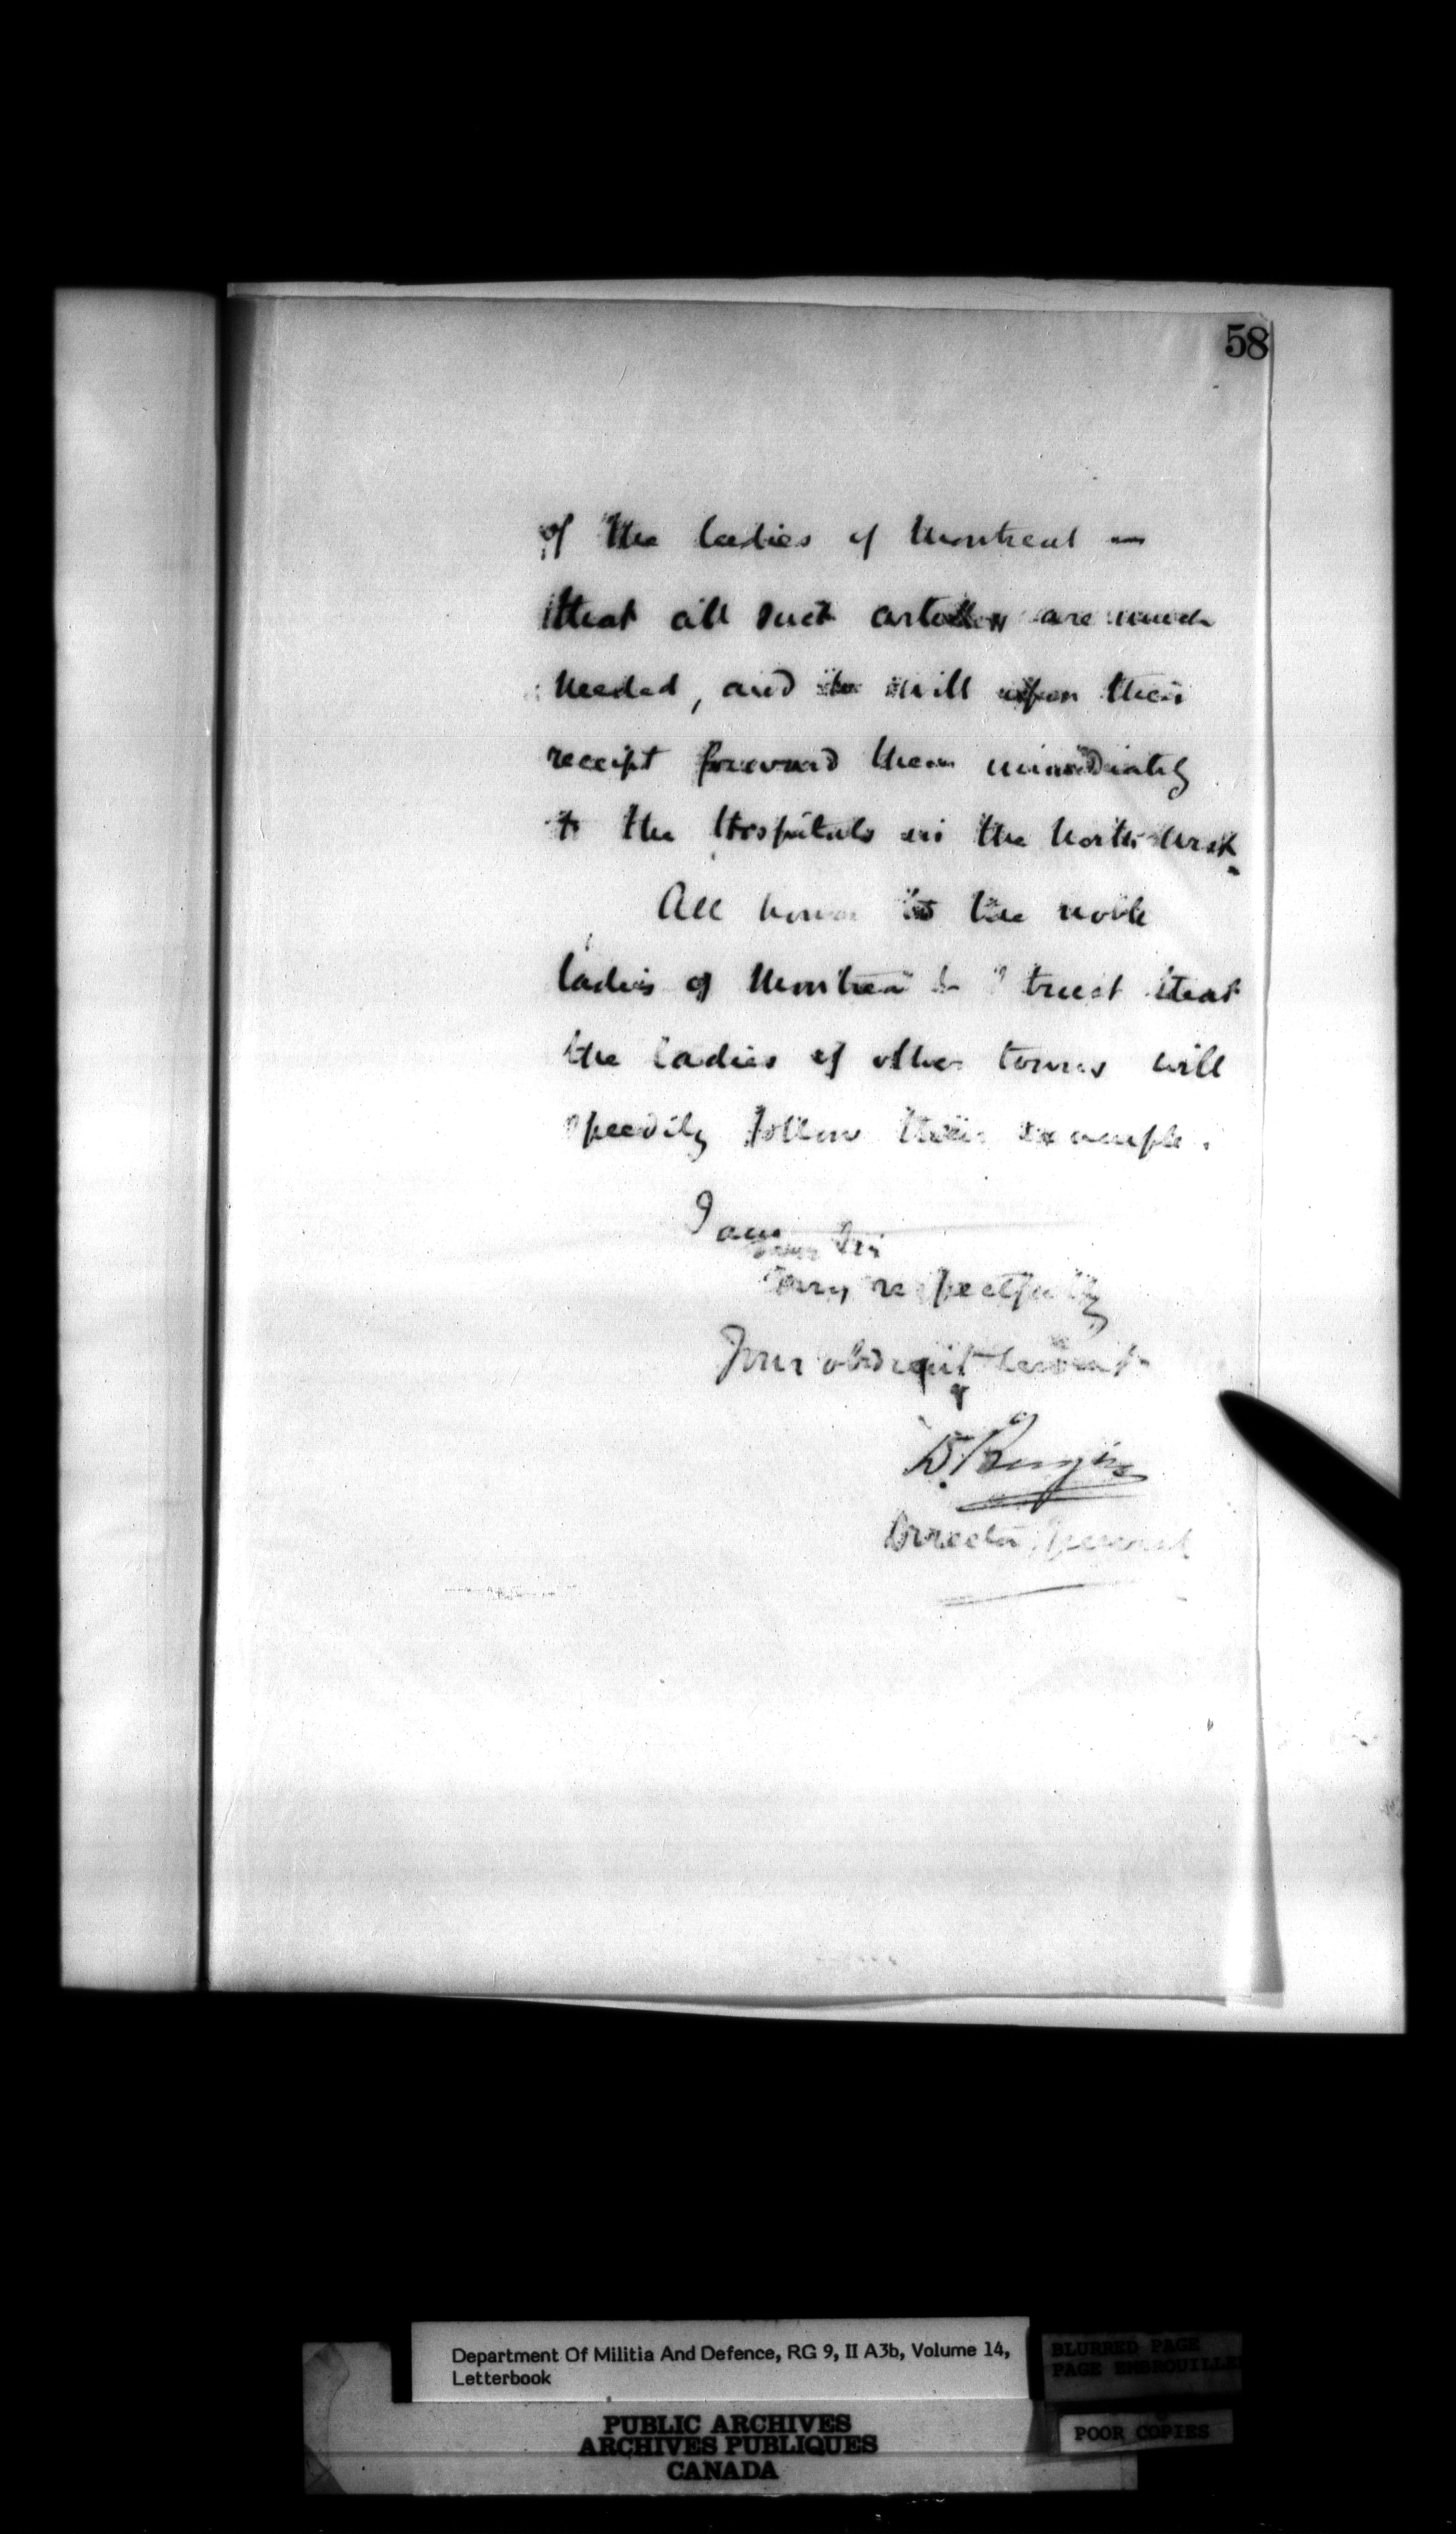 58
of the ladies of Montreal —
that all such articles are much
needed, and will upon their
receipt forward them immediately
to the Hospitals in the North West.
All honor to the noble
ladies of Montreal & I trust that
the ladies of other towns will
speedily follow their example.
I am
Dear Sir
Very respectfully
Your obedient Servant
D. Bergin
Director General
Department Of Militia And Defence, RG 9, II A3b, Volume 14,
Letterbook
BLURRED PAGE
PAGE EMBROUILLE
POOR COPIES
PUBLIC ARCHIVES
ARCHIVES PUBLIQUES
CANADA